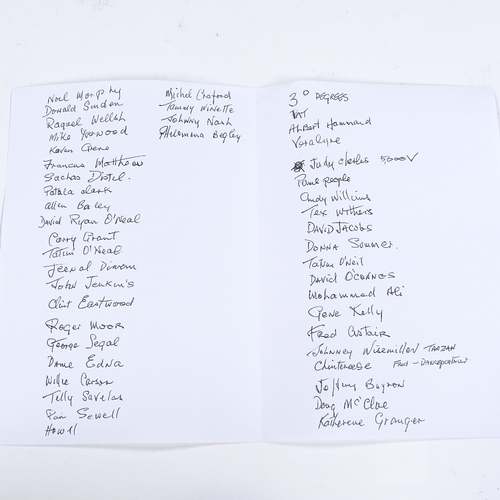 Noel Morphy
Donald Sinden
Raquel Wellsh
Mike Yorwood
Keven Gene
Francis Matthew
Sachas Distel.
Patula clark
allen Baley
David Ryan O'Neal
Carry Grant
Tatim O'Neal
John Jenkins
Clint Eastwood
Roger Moor
George Segal
Dame Edna
Willie Carson
Telly Savelas
Pan Sewell
Howell
Michel Craford
Tammy Winette
Johnny Nash
Philomena Begley
3° DEGREES
Albart Hammond
Judy charles 5000V
people
andy Williams
Tex withers
DAVID JACOBS
DONNA Sommer.
Tatum O'Neil
David O'Connos
Mohammad Ali
Gene Kelly
Fred Astair
Johnney Wisemiller TARZAN
Jeffery Bayron
Doug McClue
Katherene Granger